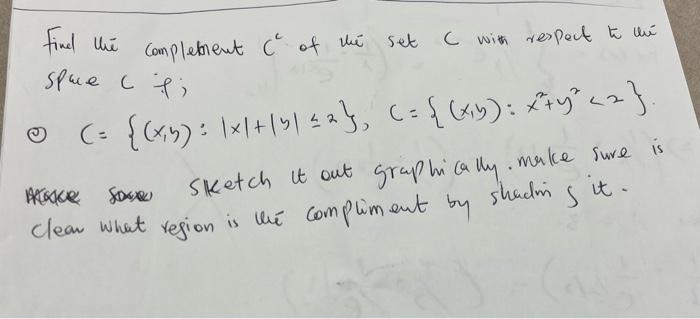 Find the complement C^c of the set C with respect to the
space C if;
② C = {(x,y): |x|+|y| ≤ 2}, C = {(x,y): x²+y² < 2}.
sketch it out graphically. make sure is
clear what region is the compliment by shading it.